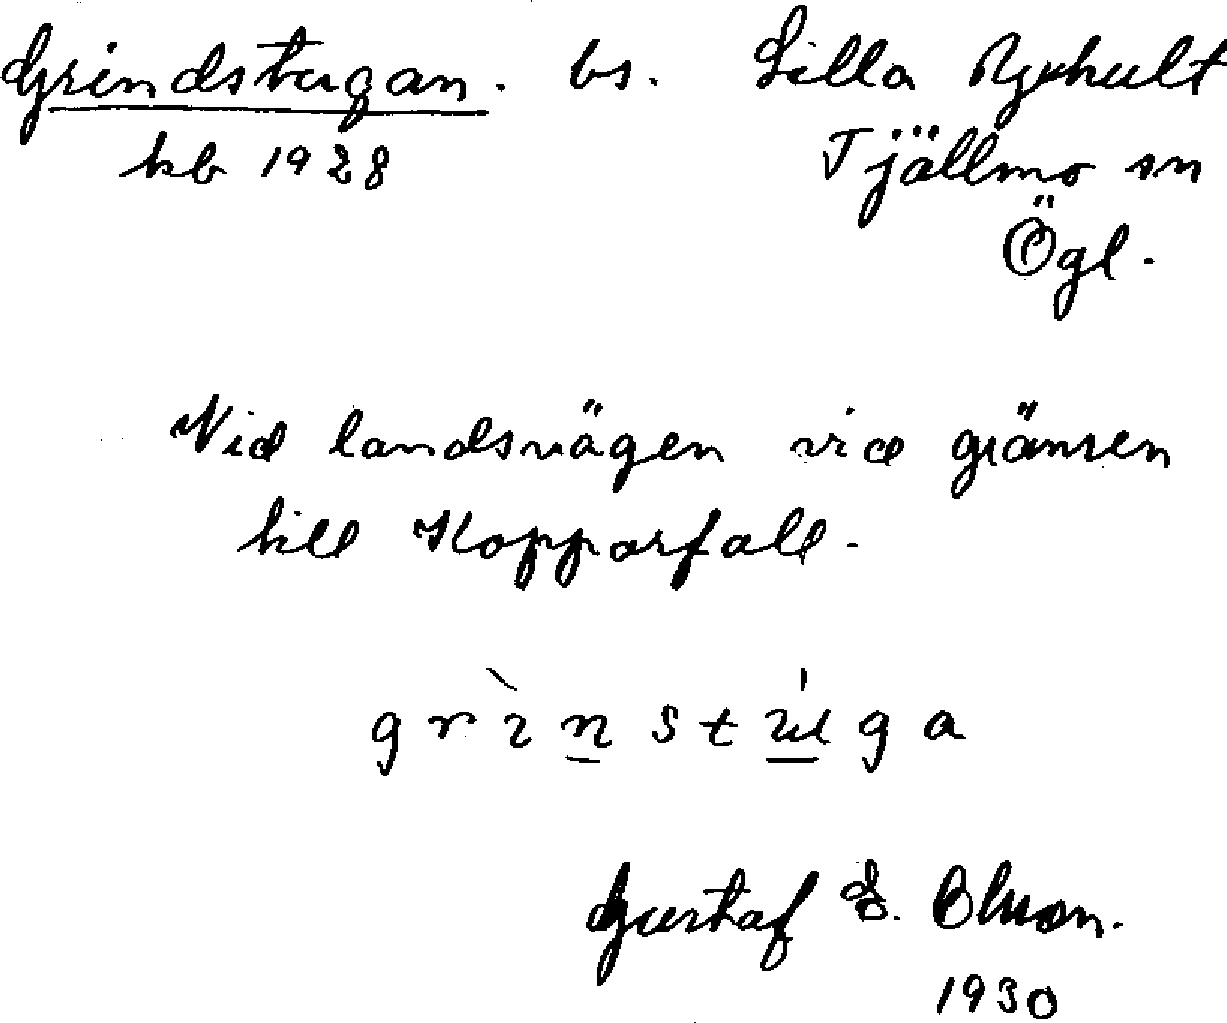 Grindstugan. bs. Lilla Ryhult
kb 1928 Tjällmo sn
Ögl.
Vid landsvägen vid gränsen
till Kopparfall.
grìnstúga
Gustaf E. Olsson.
1930